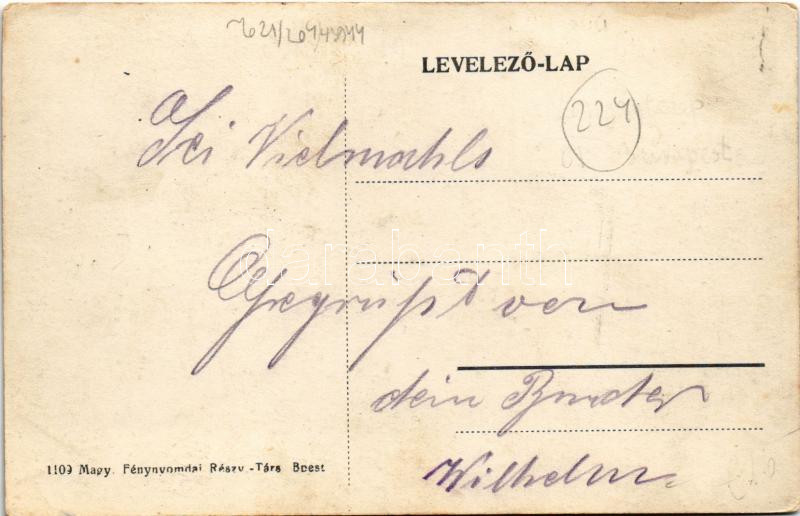 621/204/43914
LEVELEZŐ-LAP
224
Sei Vielmahls
Gegrüßt von
dein Bruder
Wilhelm
darabanth
1109 Magy. Fénynyomdai Részv.-Társ Bpest